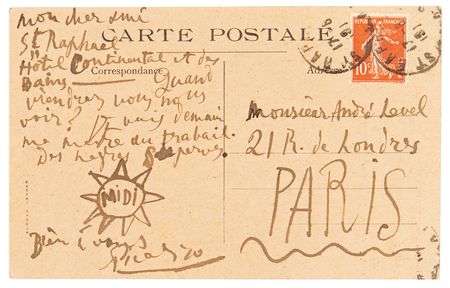 CARTE POSTALE
Correspondance
mon cher ami
St Raphael
Hôtel Continental et des
Bains Quand
viendrez vous nous
voir? Je vais demain
me mettre au travail
MIDI
Bien à vous
Picasso
REPUBLIQUE FRANÇAISE
10c
Monsieur André Level
21 R. de Londres
PARIS